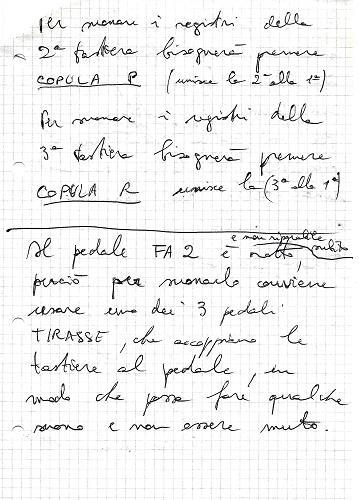 Per suonare i registri della
2ª tastiera bisognerà premere
COPULA P (unisce la 2ª alla 1ª)
Per suonare i registri della
3ª tastiera bisognerà premere
COPULA R unisce la (3ª alla 1ª)
e non riparabile subito
Il pedale FA 2 è rotto,
perciò per suonarlo conviene
usare uno dei 3 pedali
TIRASSE, che accoppiano le
tastiere al pedale, in
modo che possa fare qualche
suono e non essere muto.